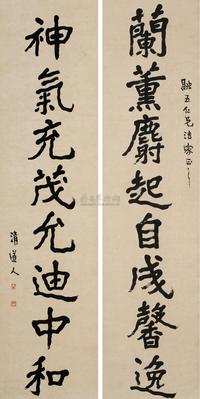 蘭薰麝起自成馨逸
融五仁兄法家正之
神氣充茂允迪中和
清道人